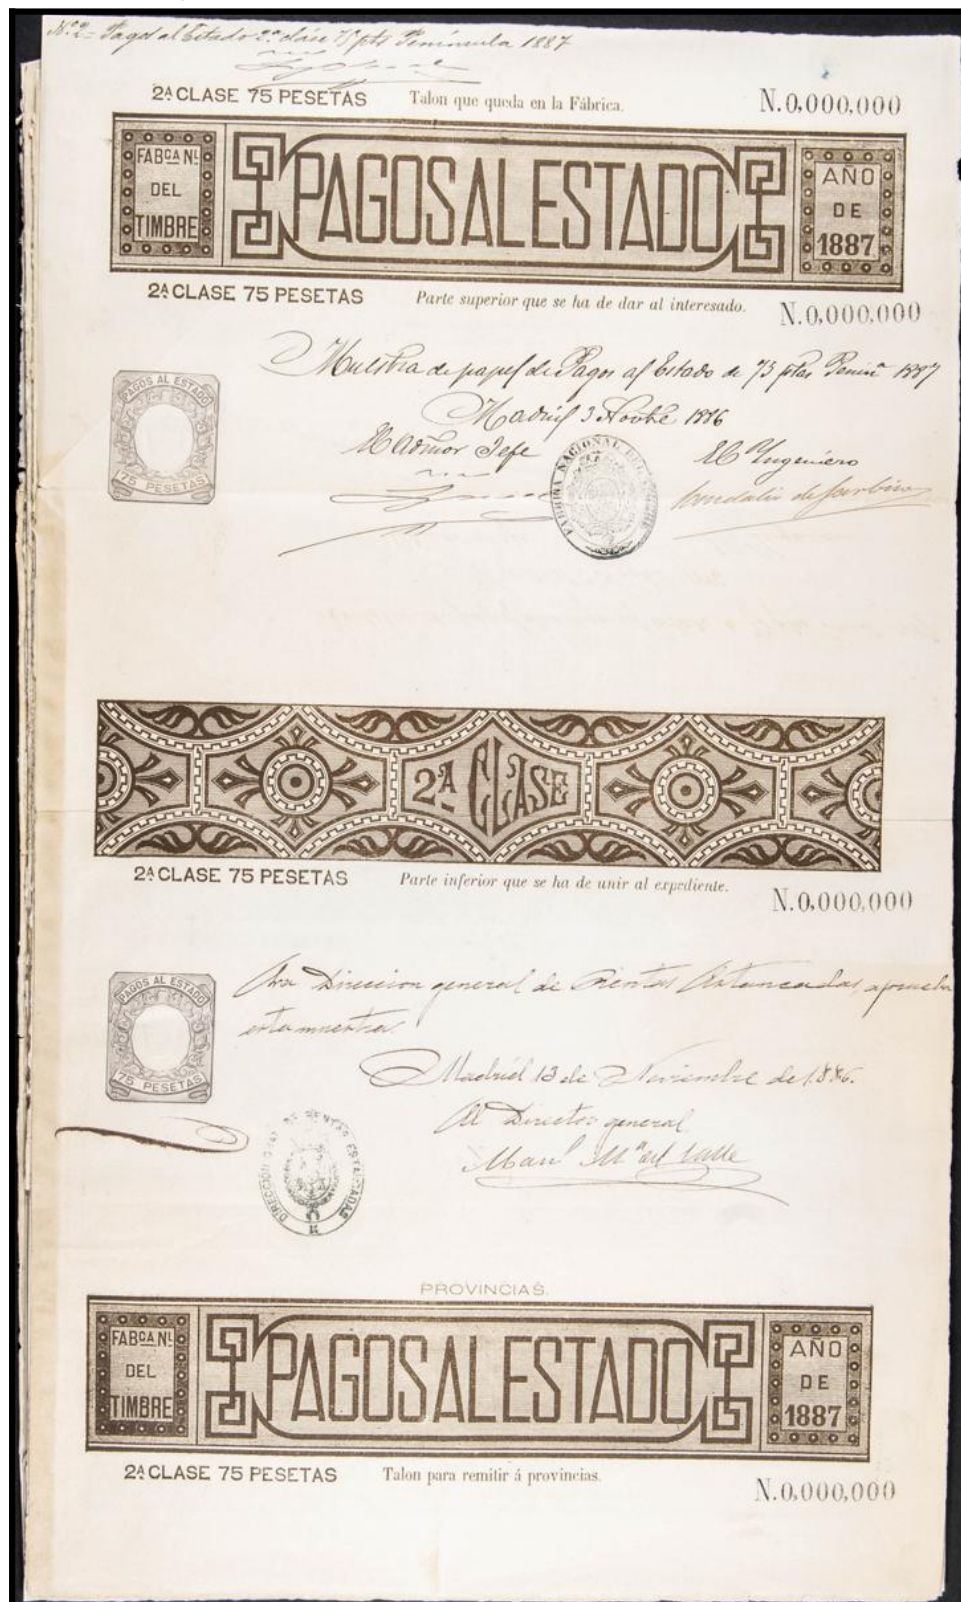 Nº 2= Pagos al Estado 2ª clase 75 pts Península 1887
2ª CLASE 75 PESETAS Talon que queda en la Fábrica. N.0,000,000
FABCA NL DEL TIMBRE
PAGOS AL ESTADO
AÑO DE 1887
2ª CLASE 75 PESETAS Parte superior que se ha de dar al interesado. N.0,000,000
Muestra de papel de Pagos al Estado de 75 ptas Peninª 1887
Madrid 3 Novbre 1886
El Admor Jefe El Yngeniero
PAGOS AL ESTADO
75 PESETAS
FABRICA NACIONAL DEL TIMBRE
2ª CLASE
2ª CLASE 75 PESETAS Parte inferior que se ha de unir al expediente. N.0,000,000
PAGOS AL ESTADO
75 PESETAS
Dirección general de Rentas Estancadas, aprueba
esta muestra
Madrid 13 de Noviembre de 1886.
El Director general
Manl Mª del Valle
DIRECCIÓN GRAL DE RENTAS ESTANCADAS
PROVINCIAS.
FABCA NL DEL TIMBRE
PAGOS AL ESTADO
AÑO DE 1887
2ª CLASE 75 PESETAS Talon para remitir á provincias. N.0,000,000